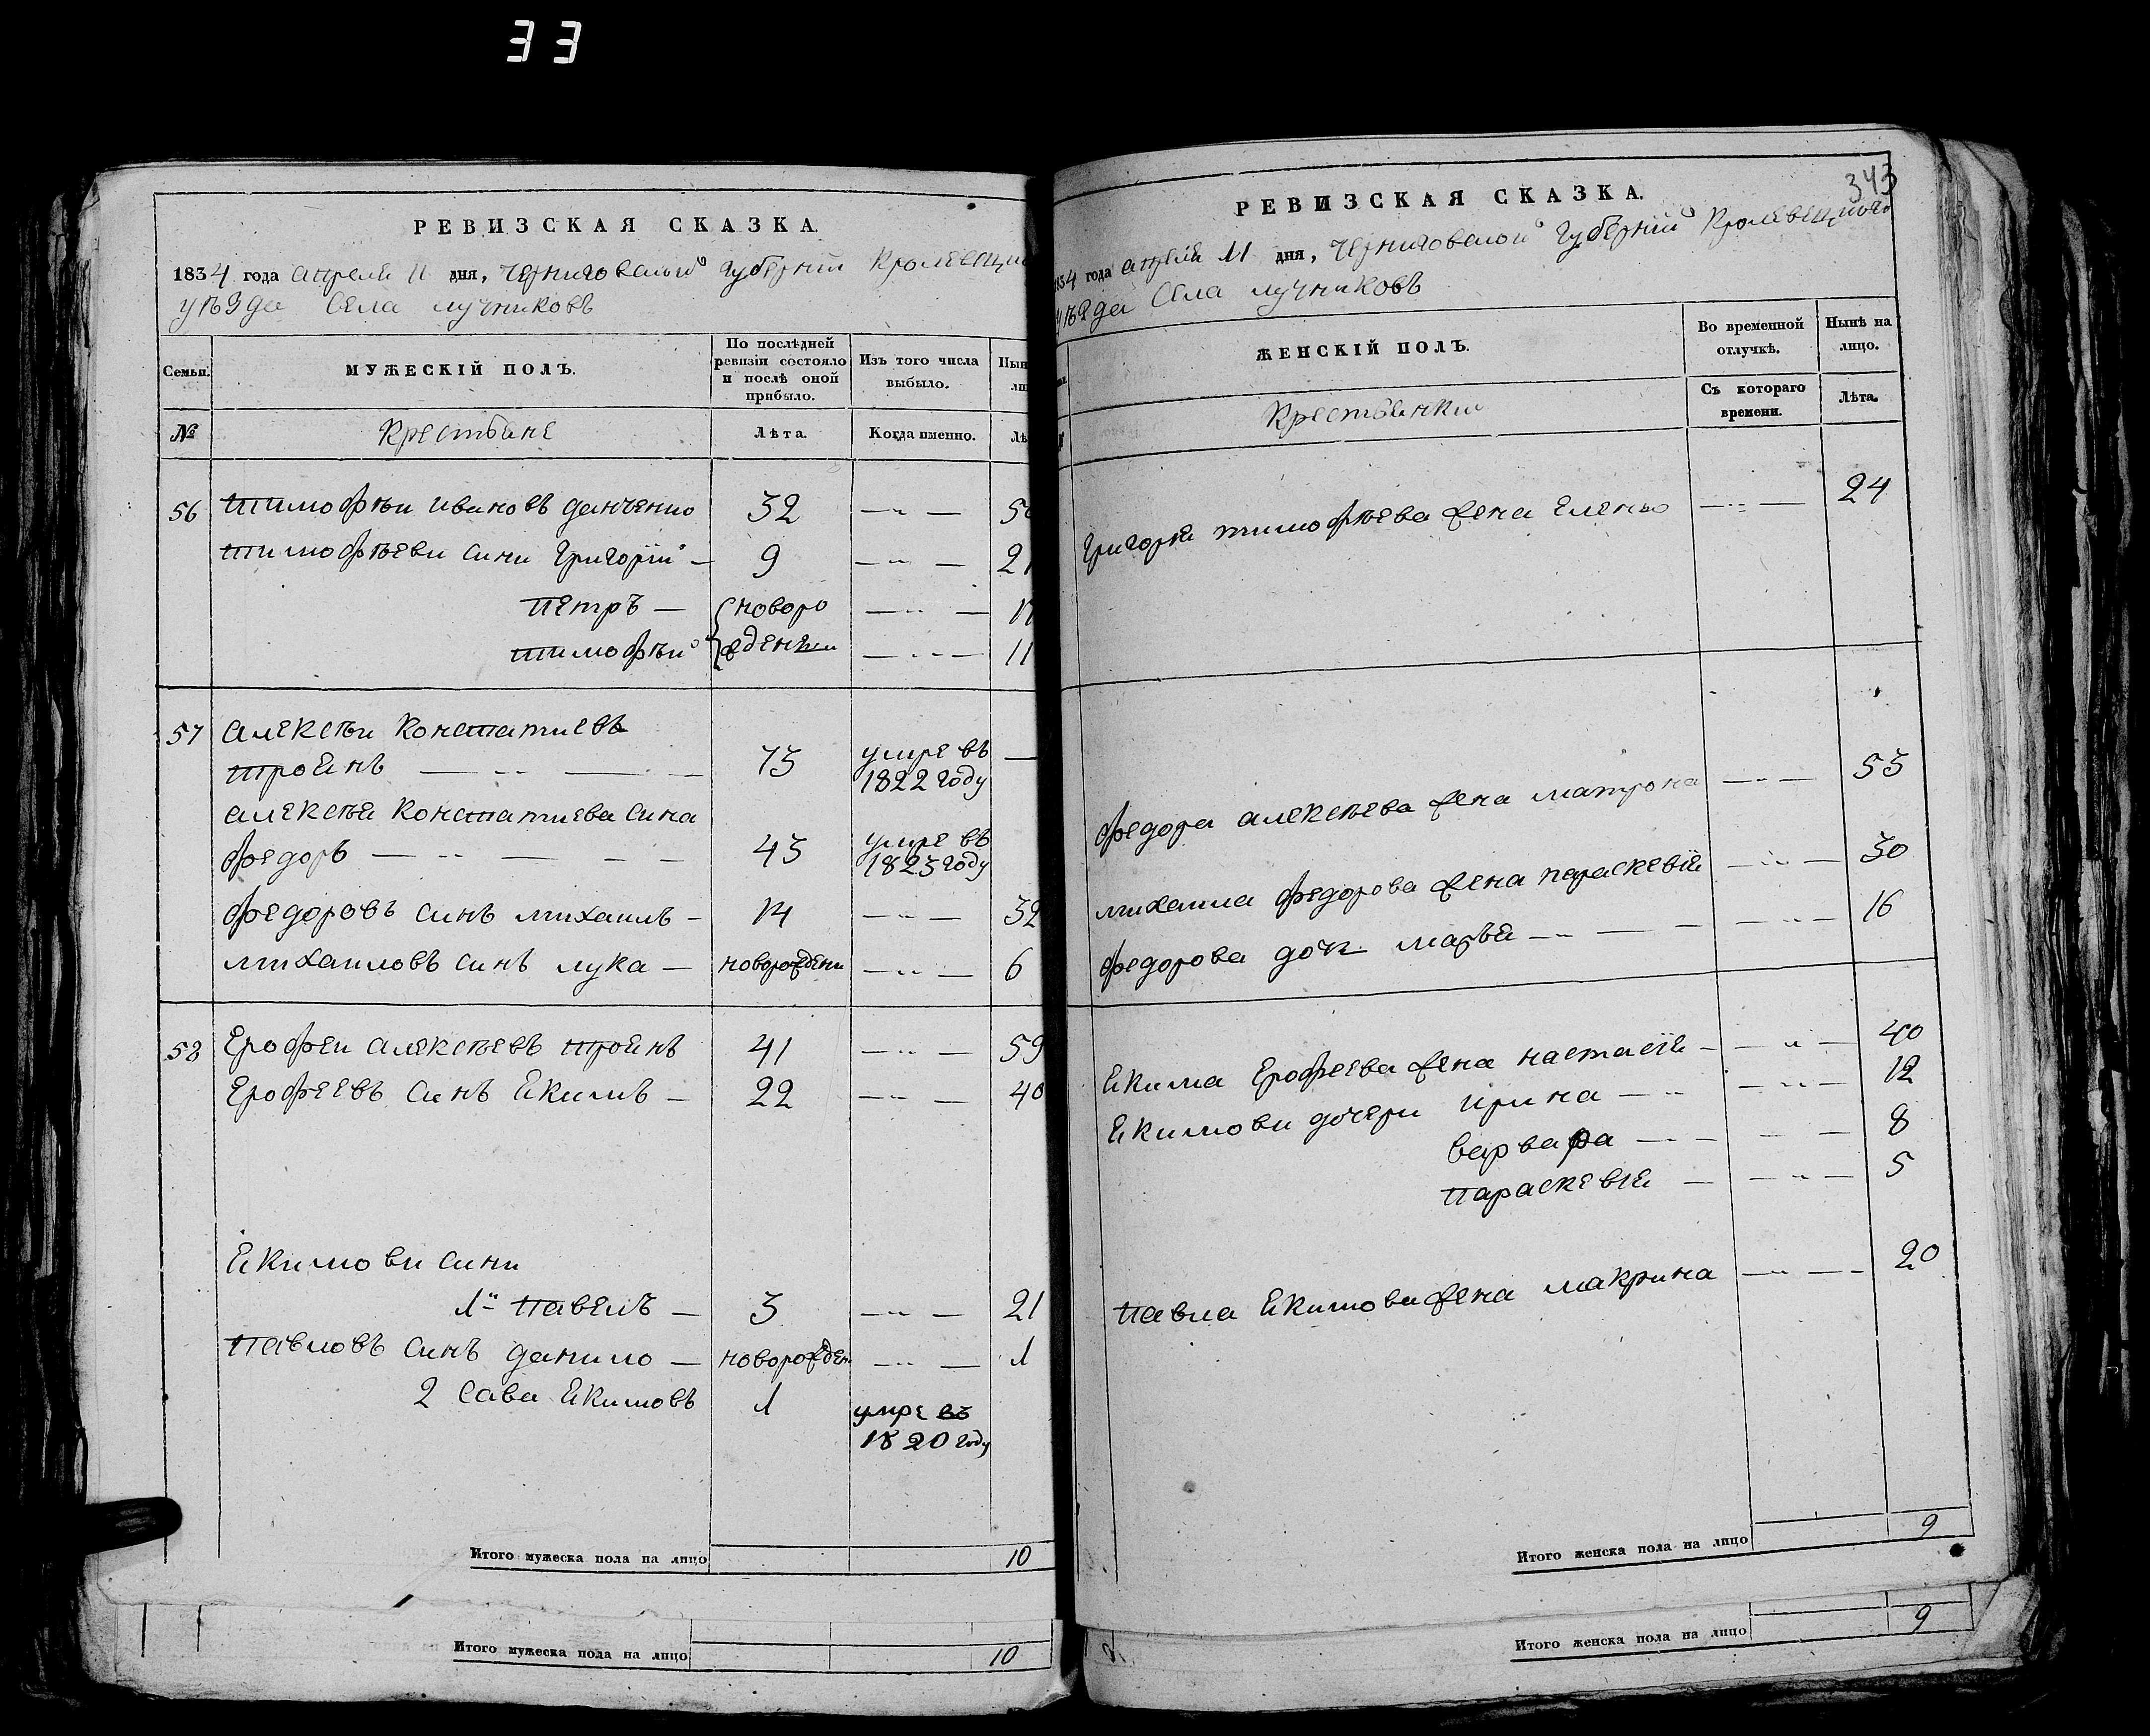 33
РЕВИЗСКАЯ СКАЗКА.
1834 года апреля 11 дня, Черниговской губернiи Кролевецко
уѣзда Села лучниковъ
Семьи.
МУЖЕСКIЙ ПОЛЪ.
По послѣдней ревизiи состояло и послѣ оной прибыло.
Изъ того числа выбыло.
Нын
ли
№
Крестьяне
Лѣта.
Когда именно.
Лѣ
56 тимофѣи ивановъ данченко 32 — " — 50
тимофѣеви сини григорiй — 9 — " — 27
петръ — новоро — " — 17
тимофѣй жденни — " — 11
57 алексѣи констатиевъ
троянъ — " — — 75 умре въ 1822 году —
алексѣя констатиева сина
федоръ — " — — — 43 умре въ 1823 году
федоровъ синъ михаилъ — 14 — " — 32
михаиловъ синъ лука — новорождени — " — 6
58 Ерофеи алексѣевъ троянъ 41 — " — 59
Ерофеевъ синъ Якимъ — 22 — " — 40
Якимови сини
1й павелъ — 3 — " — 21
павловъ синъ данило — новорожден — " — 1
2 сава Якимовъ 1 умре въ 1820 году
Итого мужеска пола на лицо 10
Итого мужеска пола на лицо 10
343
РЕВИЗСКАЯ СКАЗКА.
1834 года апреля 11 дня, Черниговской губернiй Кролевецкого
уѣзда Села лучниковъ
ЖЕНСКIЙ ПОЛЪ.
Во временной отлучкѣ.
Нынѣ на лицо.
Крестьянки
Съ котораго времени.
Лѣта.
григорiя тимофѣева жена Елена — " — 24
федора алексѣева жена матрона — " — 53
михаила федорова жена параскевiя — " — 30
федорова дочь марья — " — — — " — 16
Якима Ерофеева жена настасiя — — " — 40
Якимови дочери ирина — " — " — 12
варвара — " — — — 8
параскевiя — — " — 5
павла Якимова жена макрина — " — — 20
Итого женска пола на лицо 9
Итого женска пола на лицо 9